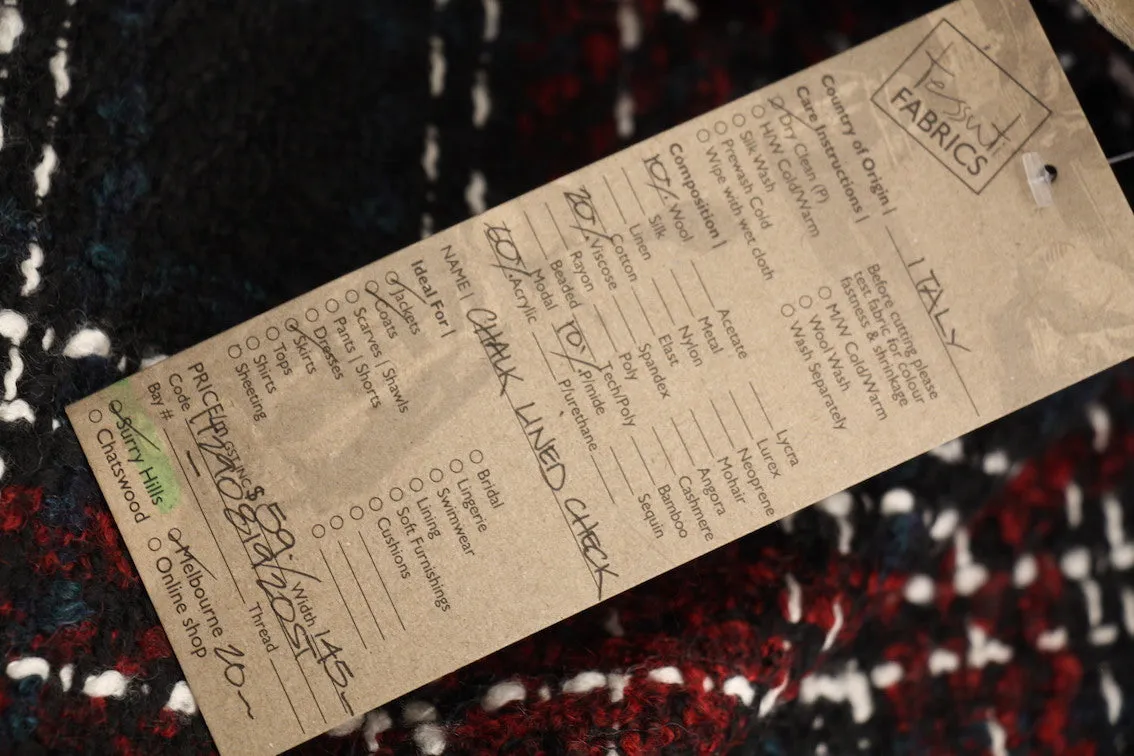 Tessuti
FABRICS
Country of Origin | ITALY
Care Instructions |
Before cutting please
test fabric for colour
fastness & shrinkage
Dry Clean (P)
H/W Cold/Warm
M/W Cold/Warm
Silk Wash
Wool Wash
Prewash Cold
Wash Separately
Wipe with wet cloth
Composition |
10% Wool Acetate Lycra
Silk Metal Lurex
Linen Nylon Neoprene
Cotton Elast Mohair
20% Viscose Spandex Angora
Rayon Poly Cashmere
Beaded Tech/Poly Bamboo
Modal 10% P/mide Sequin
60% Acrylic P/urethane
NAME | CHALK LINED CHECK
Ideal For |
Jackets Bridal
Coats Lingerie
Scarves | Shawls Swimwear
Pants | Shorts Lining
Dresses Soft Furnishings
Skirts Cushions
Tops
Shirts
Sheeting
PRICE $59 Width 145
Code
Bay # Thread
Surry Hills Melbourne 20
Chatswood Online shop